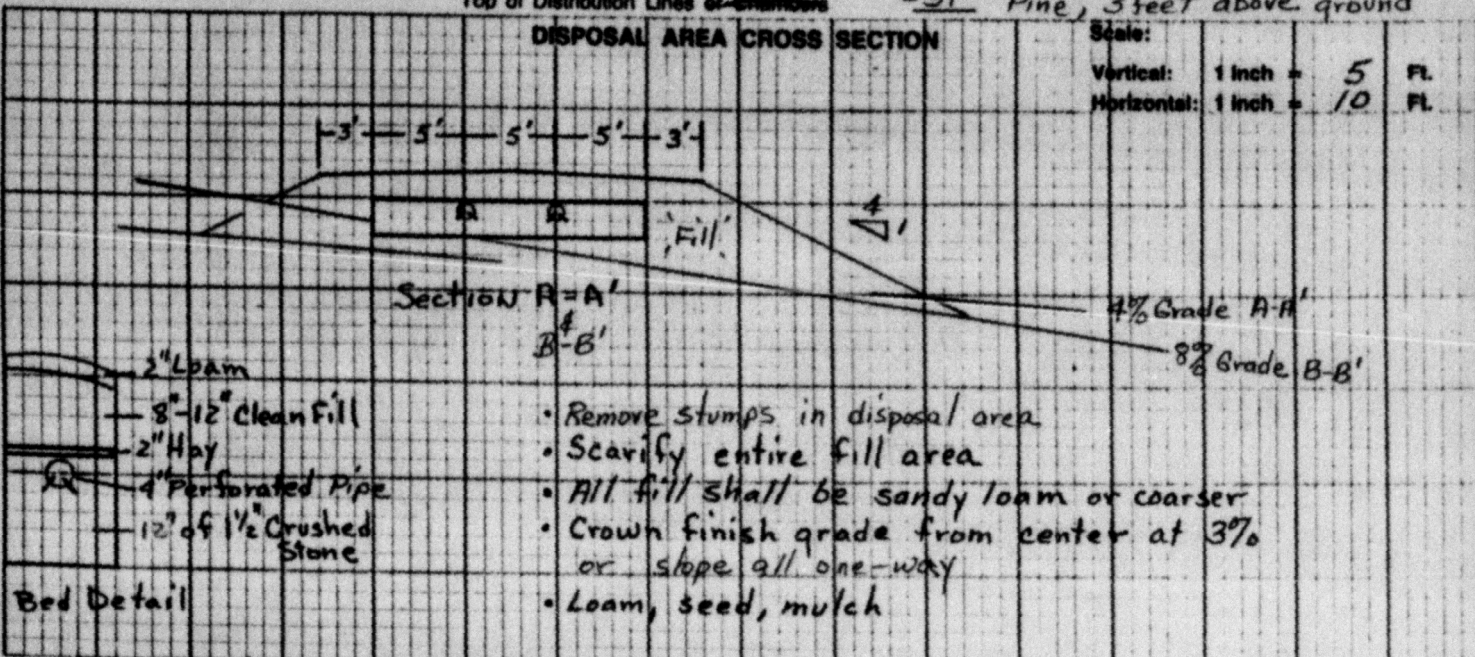 Top of Distribution Lines or Chambers
Pine, 3 feet above ground
DISPOSAL AREA CROSS SECTION
Scale:
Vertical: 1 Inch = 5 Ft.
Horizontal: 1 Inch = 10 Ft.
3' 5' 5' 5' 3'
Fill
4
1
Section A-A'
&
B-B'
4% Grade A-A'
8% Grade B-B'
2" Loam
8"-12" Clean Fill
2" Hay
4" Perforated Pipe
12" of 1½" Crushed
Stone
Bed Detail
• Remove stumps in disposal area
• Scarify entire fill area
• All fill shall be sandy loam or coarser
• Crown finish grade from center at 3%
or slope all one-way
• Loam, seed, mulch